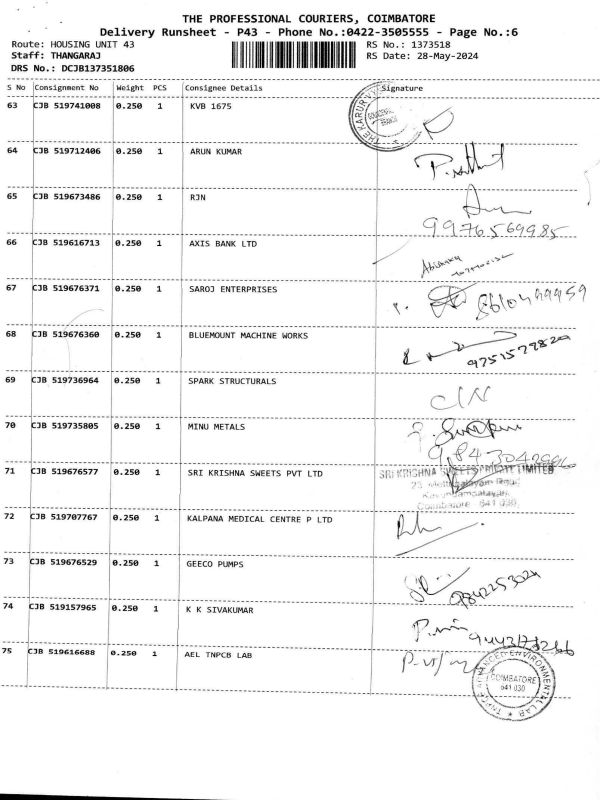 THE PROFESSIONAL COURIERS, COIMBATORE
Delivery Runsheet - P43 - Phone No.:0422-3505555 - Page No.:6
Route: HOUSING UNIT 43
RS No.: 1373518
Staff: THANGARAJ
RS Date: 28-May-2024
DRS No.: DCJB137351806
S No Consignment No Weight PCS Consignee Details Signature
63 CJB 519741008 0.250 1 KVB 1675
64 CJB 519712406 0.250 1 ARUN KUMAR
65 CJB 519673486 0.250 1 RJN
9976569985
66 CJB 519616713 0.250 1 AXIS BANK LTD
67 CJB 519676371 0.250 1 SAROJ ENTERPRISES
68 CJB 519676360 0.250 1 BLUEMOUNT MACHINE WORKS
69 CJB 519736964 0.250 1 SPARK STRUCTURALS
70 CJB 519735805 0.250 1 MINU METALS
71 CJB 519676577 0.250 1 SRI KRISHNA SWEETS PVT LTD
SRI KRISHNA SWEETS PRIVATE LIMITED
Coimbatore 641 030
72 CJB 519707767 0.250 1 KALPANA MEDICAL CENTRE P LTD
73 CJB 519676529 0.250 1 GEECO PUMPS
9842253024
74 CJB 519157965 0.250 1 K K SIVAKUMAR
75 CJB 519616688 0.250 1 AEL TNPCB LAB
ADVANCED ENVIRONMENTAL LAB
COIMBATORE
641 030